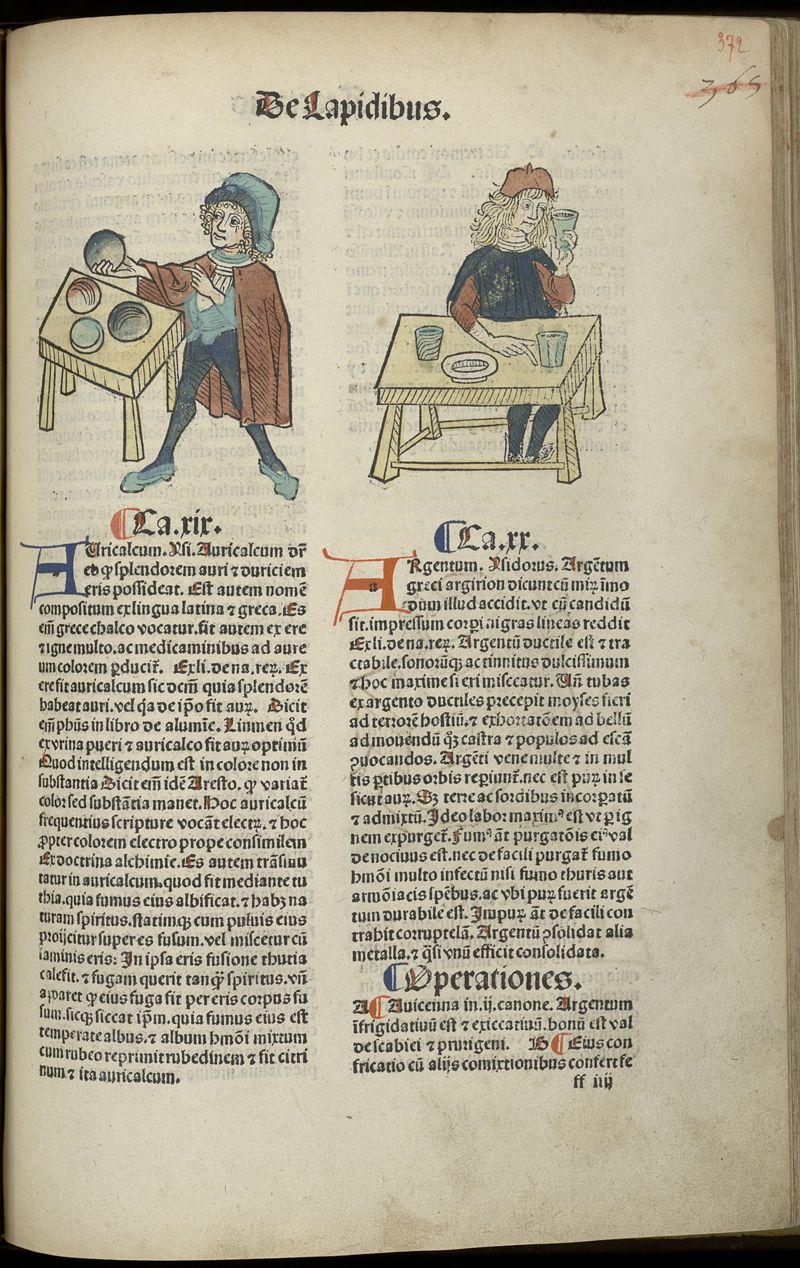 372
365
De Lapidibus.
Ca.xix.
AUricalcum. Ysi. Auricalcum dr̄
eo ꝙ splendorem auri ⁊ duriciem
eris possideat. Est autem nomē
compositum ex lingua latina ⁊ greca. Es
em̄ grece chalco vocatur. fit autem ex ere
⁊ igne multo. ac medicaminibus ad aure
um colorem ꝑducit᷑. Ex li. de na. reꝝ. Ex
ere fit auricalcum sic dcm̄ quia splendorē
habeat auri. vel q̄a de ip̄o fit auꝝ. Dicit
em̄ ph̄us in libro de alumīe. Linmen q̄d
ex vrina pueri ⁊ auricalco fit auꝝ optimū
Quod intelligendum est in colore non in
substantia Dicit em̄ idē Aresto. ꝙ variat᷑
color sed substātia manet. Hoc auricalcū
frequentius scripture vocāt electꝝ. ⁊ hoc
ꝓpter colorem electro prope consimilem
Ex doctrina alchimie. Es autem trāsmu
tatur in auricalcum. quod fit mediante tu
thia. quia fumus eius albificat. ⁊ habꝫ na
turam spiritus. statimqꝫ cum puluis eius
proijcitur super es fusum. vel miscetur cū
laminis eris: In ipsa eris fusione thutia
calefit. ⁊ fugam querit tanq̄ꝫ spiritus. vn̄
apparet ꝙ eius fuga fit per eris corpus fu
sum. sicqꝫ siccat ip̄m. quia fumus eius est
temperate albus. ⁊ album hmōi mixtum
cum rubeo reprimit rubedinem ⁊ fit citri
num ⁊ ita auricalcum.
Ca.xx.
ARgentum. Ysidorus. Argētum
greci argirion dicunt cū miꝝ īmo
dum illud accidit. vt cū candidū
sit. impressum corpi nigras lineas reddit
Ex li. de na. reꝝ. Argentū ductile est ⁊ tra
ctabile. sonorūqꝫ ac tinnitus dulcissimum
⁊ hoc maxime si eri misceatur. Un̄ tubas
ex argento ductiles precepit moyses fieri
ad terrorē hostiū. ⁊ exhortatōem ad bellū
ad mouendū qꝫ castra ⁊ populos ad escā
ꝓuocandos. Argēti vene multe ⁊ in mul
tis ꝑtibus orbis reꝑiunt᷑. nec est puꝝ in se
sicut auꝝ. Sꝫ terre ac sordibus incorꝑatū
⁊ admixtū. Ideo labor maximꝰ est vt ꝑ ig
nem expurget᷑. Fumꝰ āt purgatōis eiꝰ val
de nociuus est. nec de facili purgat᷑ fumo
hmōi multo infectū nisi fumo thuris aut
armōiacis spēbus. ac vbi puꝝ fuerit argē
tum durabile est. Impuꝝ āt de facili con
trahit corruptelā. Argentū ꝯsolidat alia
metalla. ⁊ q̄si vnū efficit consolidata.
Operationes.
A Auicenna in .ij. canone. Argentum
īfrigidatiuū est ⁊ exiccatiuū. bonū est val
de scabiei ⁊ prurigeni. B Eius con
fricatio cū alijs comixtionibus confert fe
ff iiij